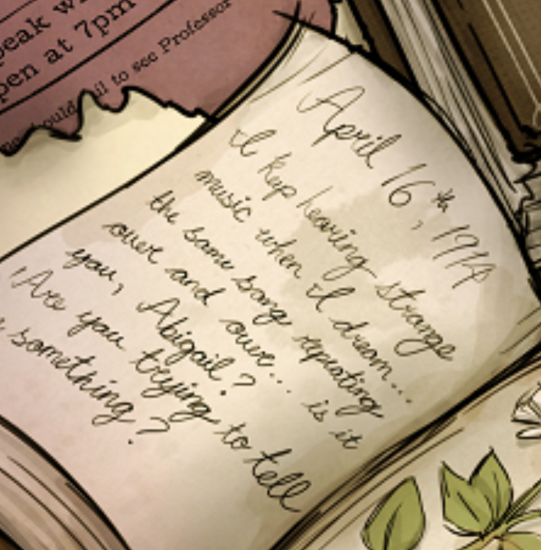 peak w
pen at 7pm
to see Professor
April 16th, 1914
I kep hearing strange
music when I dream...
the same song repeating
over and over... is it
you, Abigail?
Are you trying to tell
something?